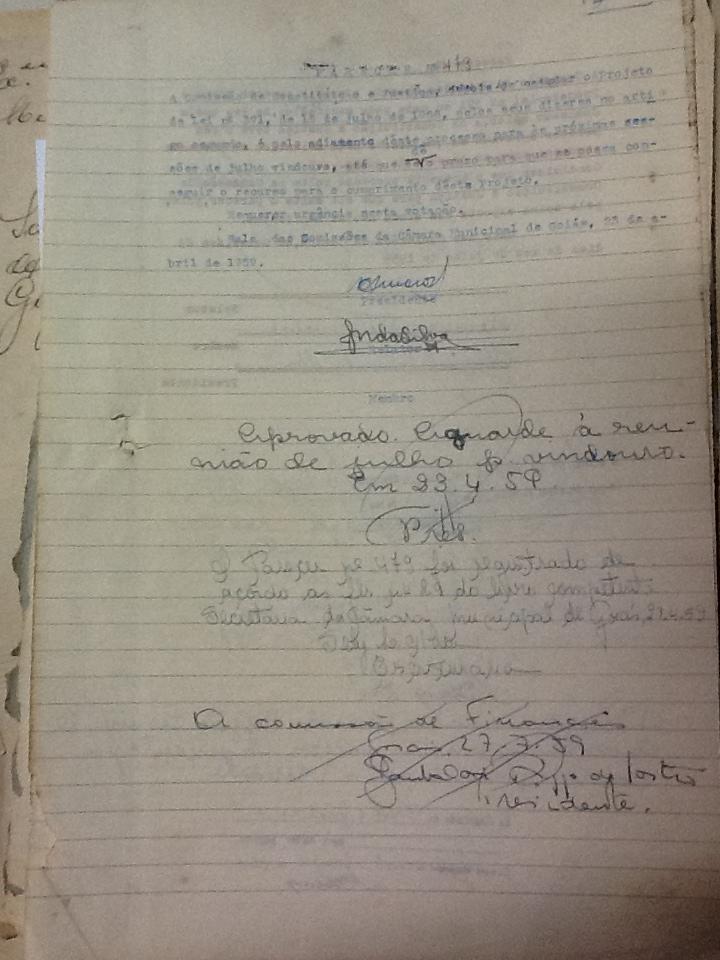 PARECER nº 479
A Comissão de Constituição e Justiça, depois de estudar o Projeto
de Lei nº 391, de 18 de julho de 1958, pelos seus dizeres no arti
go segundo, é pelo adiamento dêste processo para as próximas ses-
sões de julho vindouro, até que prazo para que se possa con-
seguir o recurso para o cumprimento dêste Projeto.
Requerer urgência nesta votação.
Sala das Comissões da Câmara Municipal de Goiás, 23 de a-
bril de 1959.
Presidente
Relator
Membro
Aprovado. Aguarde à reu-
nião de julho p. vindouro.
Em 23.4.59.
Pres.
O Parecer nº 479 foi registrado de
acôrdo as fls nº 89 do livro competente
Secretaria da Câmara municipal de Goiás, 27.4.59
A comissão de Finanças
27.7.59
Presidente.